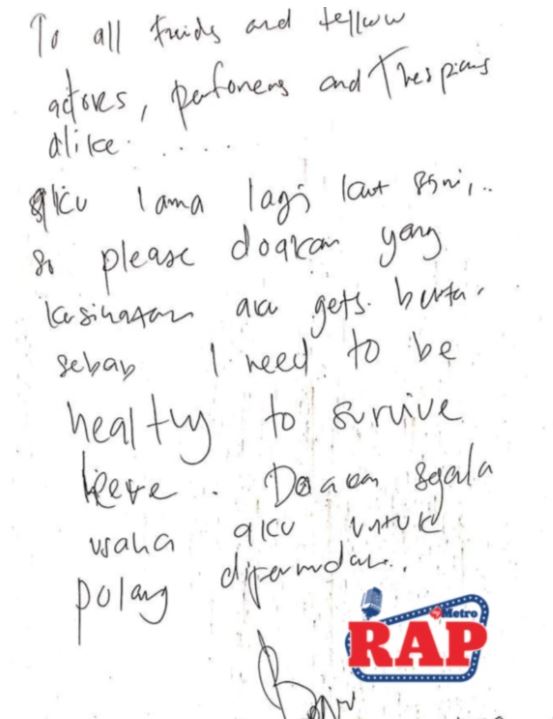 To all friends and fellow
actors, performers and Thespians
alike.....
aku lama lagi kat sini,..
so please doakan yang
kesihatan aku gets better.
sebab I need to be
healthy to survive
here. Doakan segala
usaha aku untuk
pulang dipermudah..
Metro
RAP